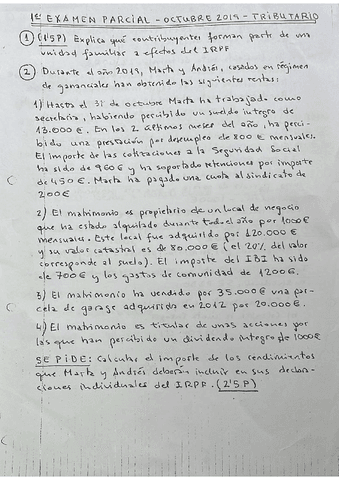 1er EXAMEN PARCIAL - OCTUBRE 2019 - TRIBUTARIO
1 (1'5P) Explica qué contribuyentes forman parte de una
unidad familiar a efectos del IRPF
2 Durante el año 2019, Marta y Andrés, casados en régimen
de gananciales han obtenido las siguientes rentas:
1) Hasta el 31 de octubre Marta ha trabajado como
secretaria, habiendo percibido un sueldo íntegro de
13.000 €. En los 2 últimos meses del año, ha perci-
bido una prestación por desempleo de 800 € mensuales.
El importe de las cotizaciones a la Seguridad Social
ha sido de 960 € y ha soportado retenciones por importe
de 450 €. Marta ha pagado una cuota al sindicato de
200 €
2) El matrimonio es propietario de un local de negocio
que ha estado alquilado durante todo el año por 1000 €
mensuales. Este local fue adquirido por 120.000 €
y su valor catastral es de 80.000 € (el 20% del valor
corresponde al suelo). El importe del IBI ha sido
de 700 € y los gastos de comunidad de 1200 €.
3) El matrimonio ha vendido por 35.000 € una par-
cela de garage adquirida en 2012 por 20.000 €.
4) El matrimonio es titular de unas acciones por
las que han percibido un dividendo íntegro de 1000 €
SE PIDE: Calcular el importe de los rendimientos
que Marta y Andrés deberán incluir en sus declara-
ciones individuales del IRPF. (2'5P)